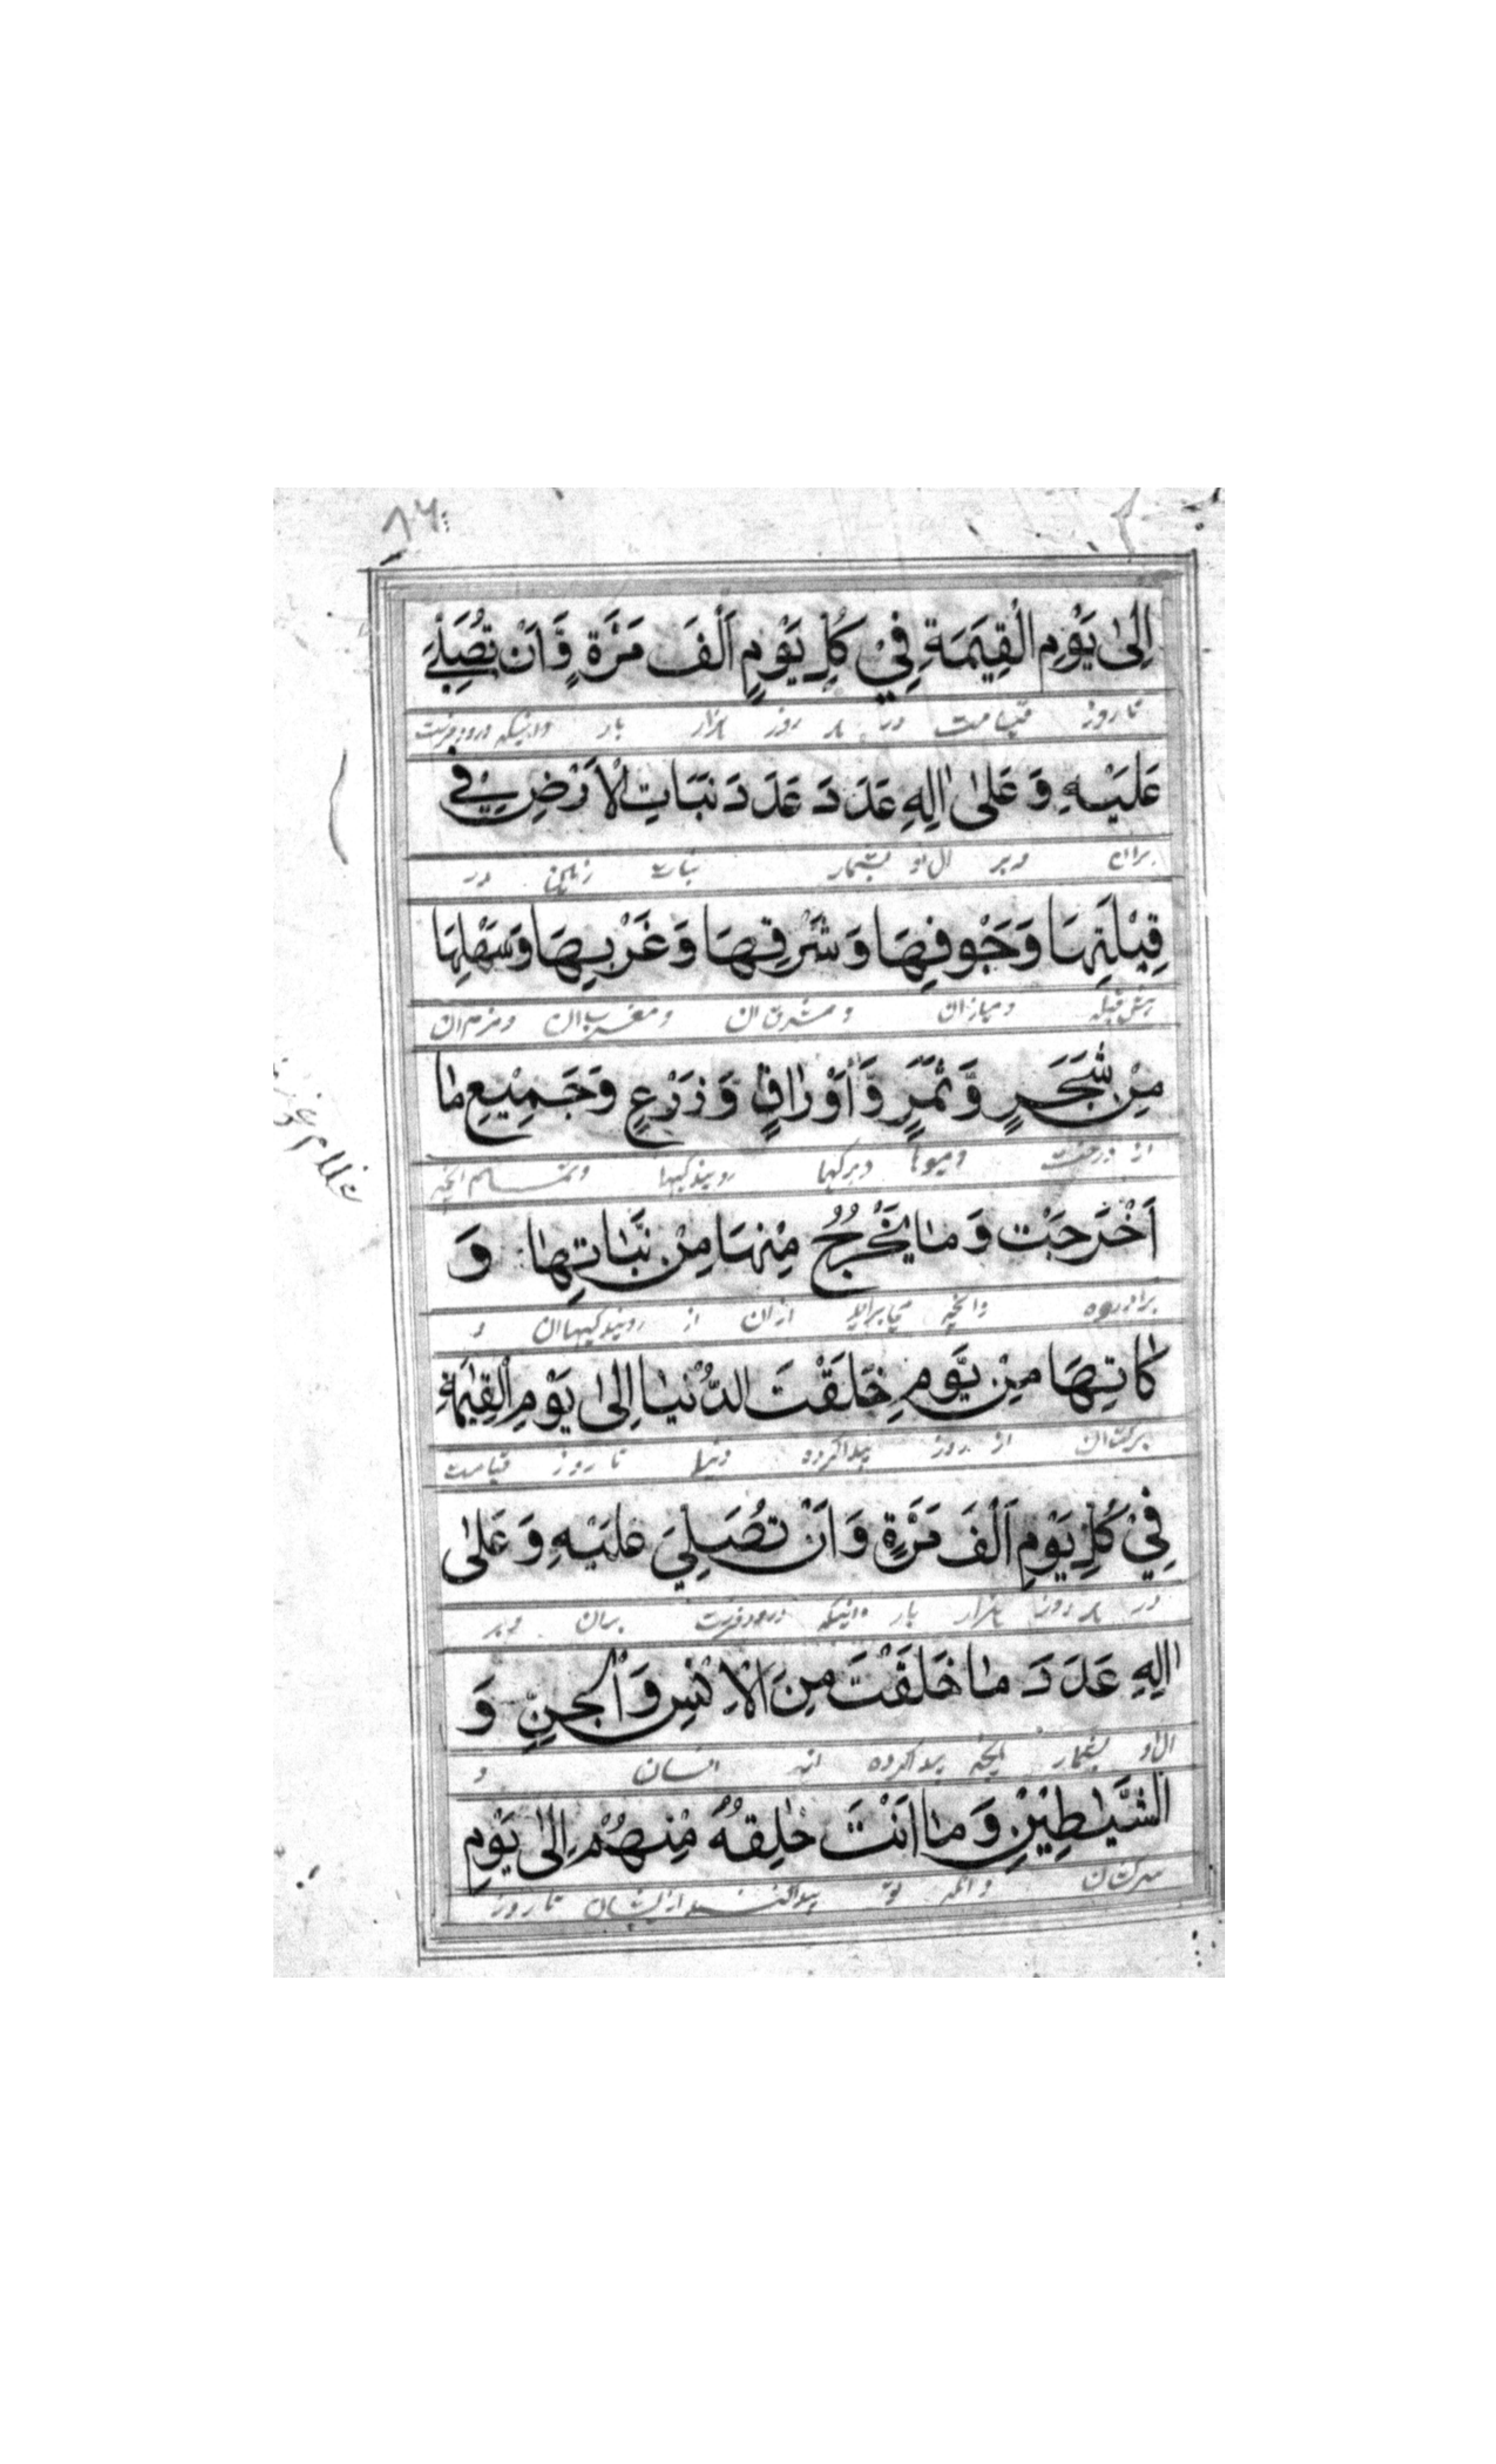 ٨٦
اِلىٰ يَوْمِ الْقِيٰمَةِ فِيْ كُلِّ يَوْمٍ اَلْفَ مَرَّةٍ وَّاَنْ تُصَلِّيَ
تا روز قیامت در هر روز هزار بار واینکه درود فرست
عَلَيْهِ وَ عَلىٰ اٰلِهِ عَدَدَ عَدَدَ نَبَاتِ الْاَرْضِ فِيْ
بران و بر ال او بشمار نبات زمین در
قِبْلَتِهَا وَ جَوْفِهَا وَ شَرْقِهَا وَ غَرْبِهَا وَ سَهْلِهَا
ومیان ان و مشرق ان و مغرب ان و نرم ان
مِنْ شَجَرٍ وَّ ثَمَرٍ وَّ اَوْرَاقٍ وَّ زَرْعٍ وَ جَمِيْعِ مَا
از درخت و میوها و برکها رویندکیها و تمام انچه
اَخْرَجَتْ وَ مَا يَخْرُجُ مِنْهَا مِنْ نَّبَاتِهَا وَ
وانچه می براید ازان از رویندکیهاان و
كَاتِهَا مِنْ يَّوْمِ خَلَقْتَ الدُّنْيَا اِلىٰ يَوْمِ الْقِيٰمَةِ
برکت ان از روز پیدا کرده دنیا تا روز قیامت
فِيْ كُلِّ يَوْمٍ اَلْفَ مَرَّةٍ وَ اَنْ تُصَلِّيَ عَلَيْهِ وَ عَلىٰ
در هر روز هزار بار واینکه درود فرست بران و بر
اٰلِهِ عَدَدَ مَا خَلَقْتَ مِنَ الْاِنْسِ وَ الْجِنِّ وَ
ال او بشمار انچه پیدا کرده از انسان و
الشَّيٰطِيْنِ وَ مَا اَنْتَ خَالِقُهُ مِنْهُمْ اِلىٰ يَوْمِ
سرکشان و انکه تو پیدا کننده از ایشان تا روز